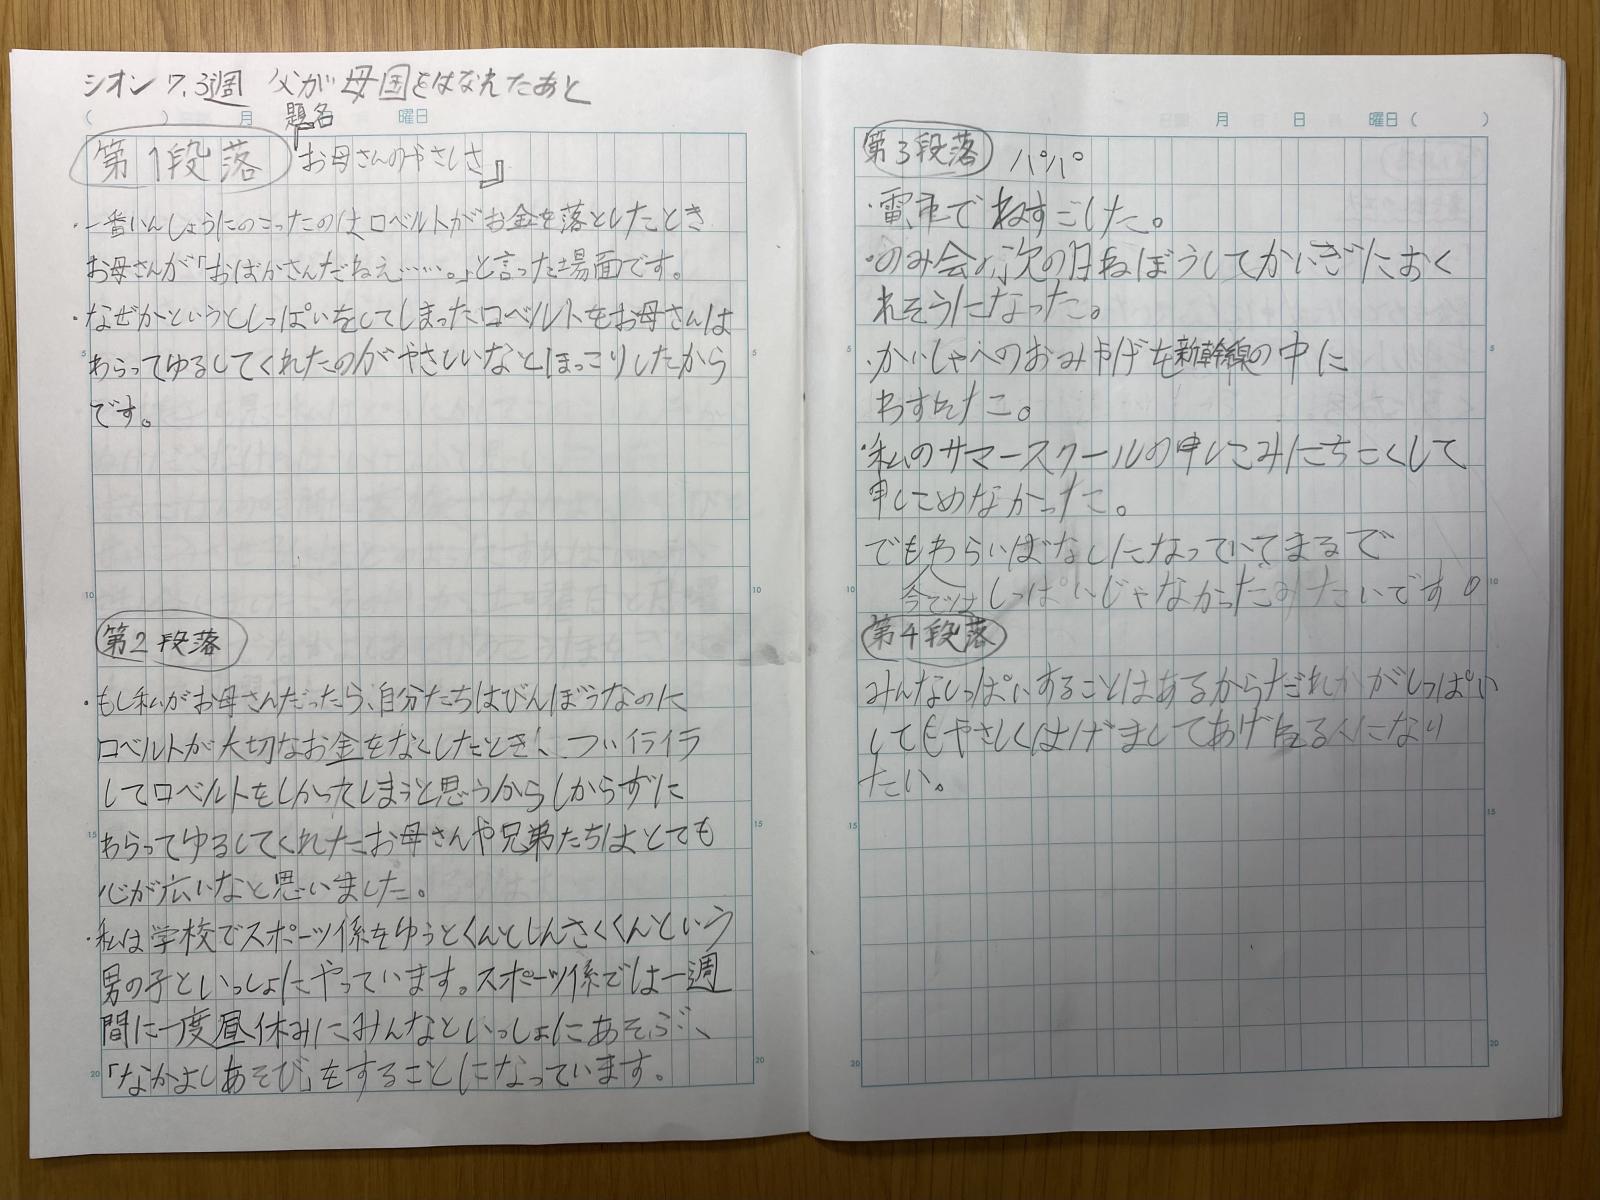 シオン 7.3週 父が母国をはなれたあと
( ) 月 曜日
題名
第1段落 『お母さんのやさしさ』
・一番いんしょうにのこったのはロベルトがお金を落としたとき
お母さんが「おばかさんだねえ……。」と言った場面です。
・なぜかというとしっぱいをしてしまったロベルトをお母さんは
わらってゆるしてくれたのがやさしいなとほっこりしたから
です。
第2段落
・もし私がお母さんだったら、自分たちはびんぼうなのに
ロベルトが大切なお金をなくしたとき、ついイライラ
してロベルトをしかってしまうと思うからしからずに
わらってゆるしてくれたお母さんや兄弟たちはとても
心が広いなと思いました。
・私は学校でスポーツ係をゆうとくんとしんさくくんという
男の子といっしょにやっています。スポーツ係では一週
間に一度昼休みにみんなといっしょにあそぶ、
「なかよしあそび」をすることになっています。
月 日 曜日 ( )
第3段落 パパ
・電車でねすごした。
・のみ会の次の日ねぼうしてかいぎにおく
れそうになった。
・かいしゃへのおみやげを新幹線の中に
わすれた。
・私のサマースクールの申しこみにちこくして
申しこめなかった。
でもわらいばなしになっていてまるで
今では
しっぱいじゃなかったみたいです。
第4段落
みんなしっぱいすることはあるからだれかがしっぱい
してもやさしくはげましてあげれるくになり
たい。
5
10
15
20
5
10
15
20
5
10
15
20
5
10
15
20